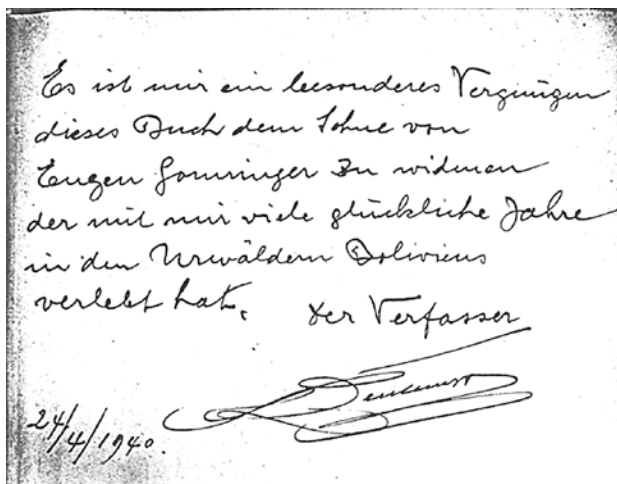 Es ist mir ein besonderes Vergnügen
dieses Buch dem Sohne von
Eugen Gomringer zu widmen
der mit mir viele glückliche Jahre
in den Urwäldern Boliviens
verlebt hat.
Der Verfasser
24/4/1940.